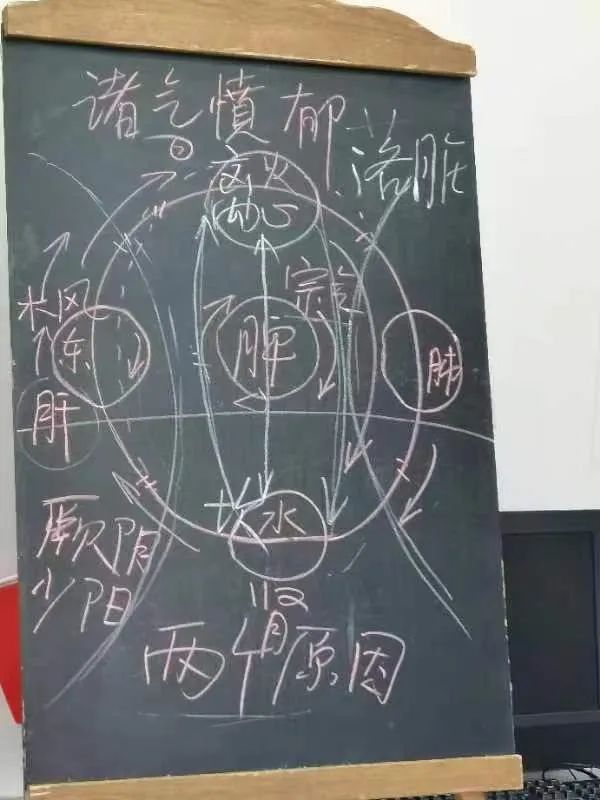 诸气憤郁
落脏
火
心
宗气
木风
东
脾
肺
肝
坎水
厥阴
肾
少阳
两个原因